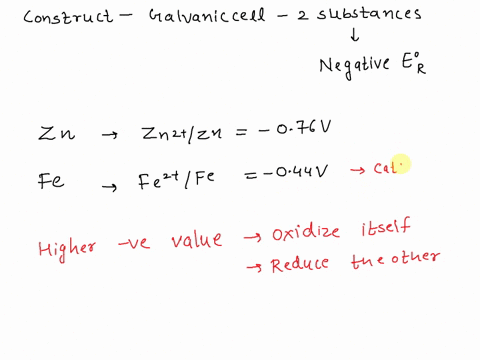 Construct - Galvanic cell - 2 substances
↓
Negative E°R
Zn → Zn2+/Zn = -0.76V
Fe → Fe2+/Fe = -0.44V → Cat
Higher -ve value → Oxidize itself
→ Reduce the other